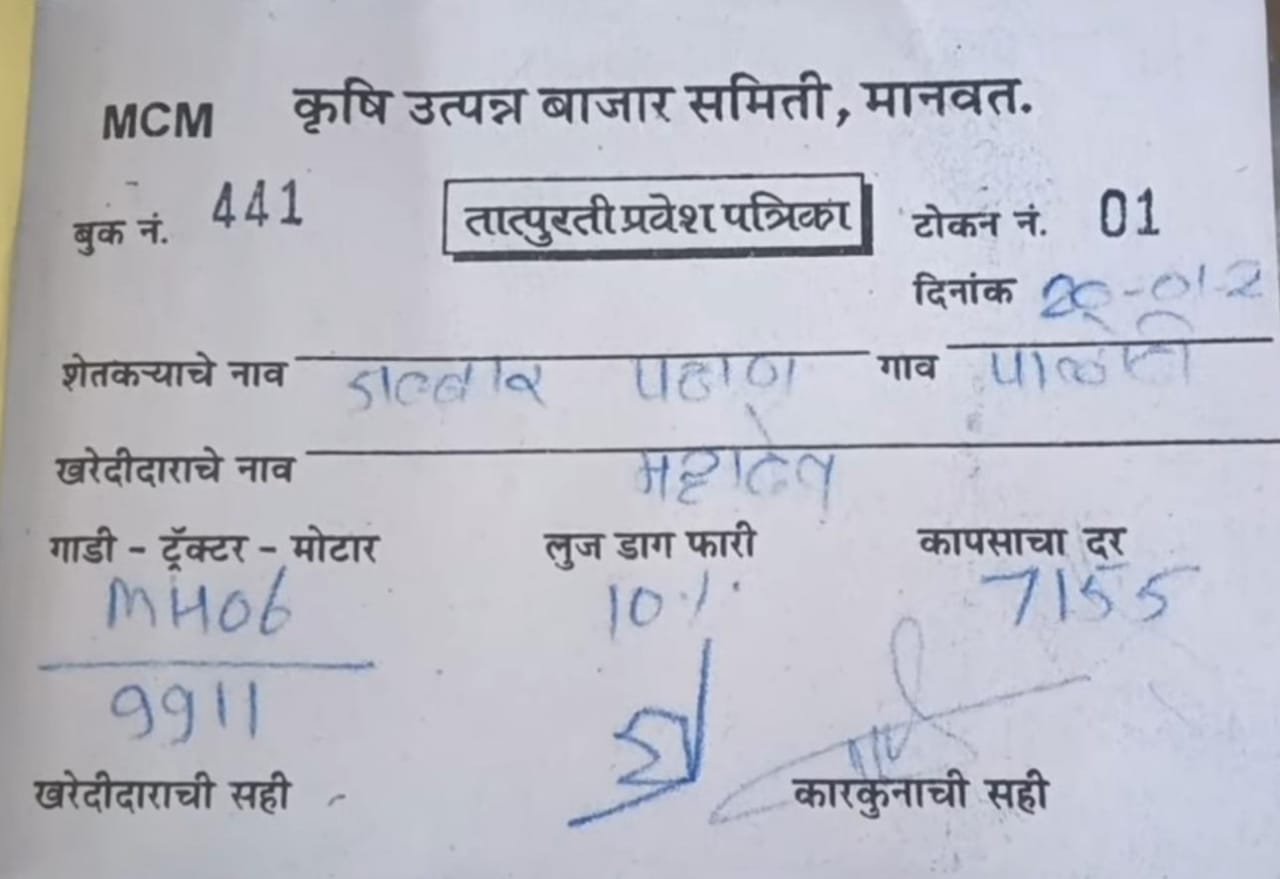 MCM कृषि उत्पन्न बाजार समिती, मानवत.
बुक नं. 441 तात्पुरती प्रवेश पत्रिका टोकन नं. 01
दिनांक
शेतकऱ्याचे नाव पठाण गाव
खरेदीदाराचे नाव महादेव
गाडी - ट्रॅक्टर - मोटार लुज डाग फारी कापसाचा दर
MH06 10% 7155
9911
खरेदीदाराची सही कारकुनाची सही